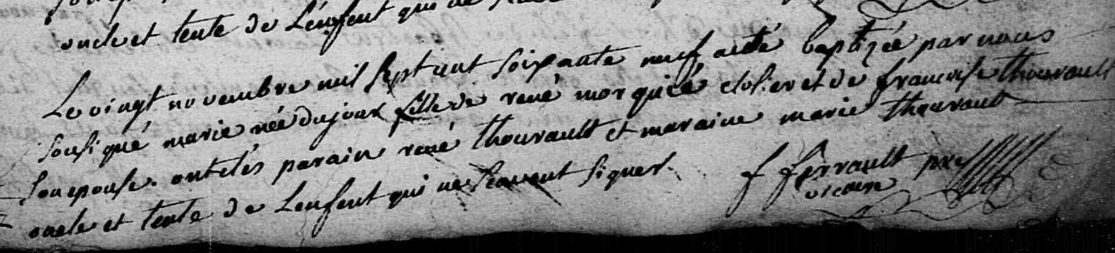 oncle et tente de Lenfent qui ne
Le vingt novembre mil sept cent soixante neuf a eté baptizée par nous
sousigné marie née du jour fille de rené morquicé closier et de francoise thourault
son epouse. ont etés parain rené thourault et maraine marie thourault
oncle et tente de Lenfent qui ne scavent signer.
f ferrault pre
vicaire